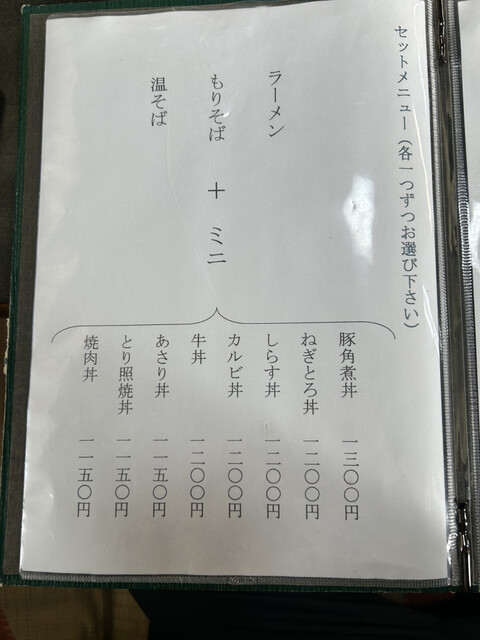 セットメニュー（各一つずつお選び下さい）
ラーメン
もりそば ＋ ミニ
温そば
豚角煮丼 一三〇〇円
ねぎとろ丼 一二〇〇円
しらす丼 一二〇〇円
カルビ丼 一二〇〇円
牛丼 一二〇〇円
あさり丼 一一五〇円
とり照焼丼 一一五〇円
焼肉丼 一一五〇円